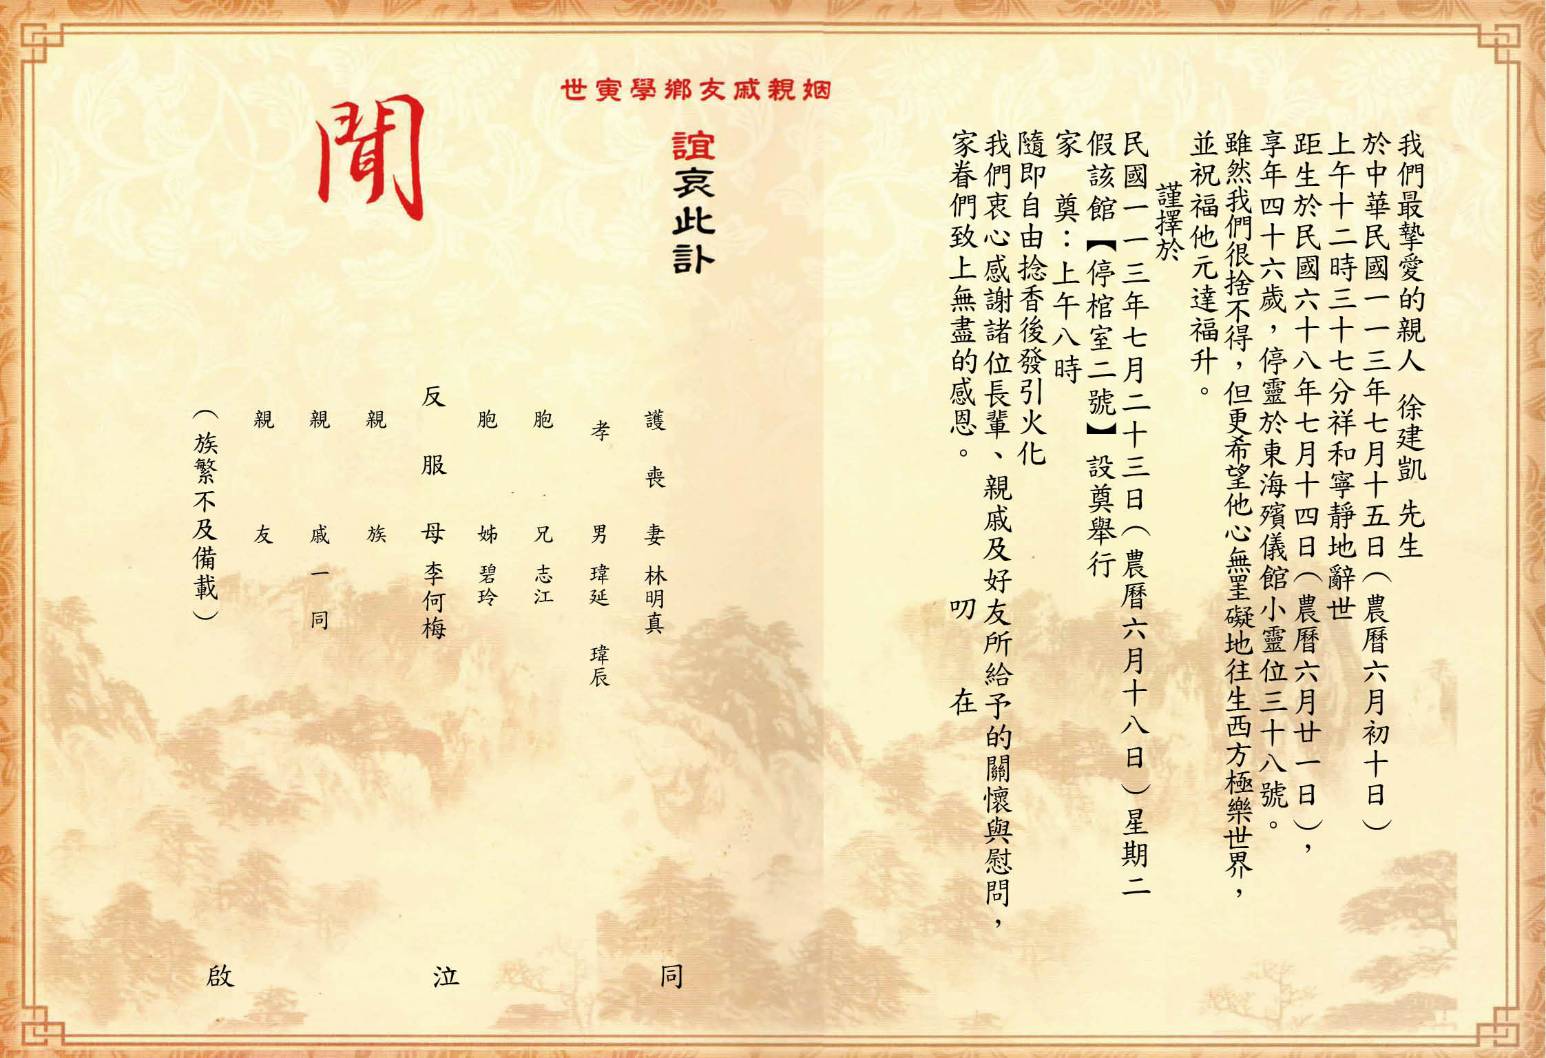 我們最摯愛的親人 徐建凱 先生
於中華民國一一三年七月十五日(農曆六月初十日)
上午十二時三十七分祥和寧靜地辭世
距生於民國六十八年七月十四日(農曆六月廿一日),
享年四十六歲,停靈於東海殯儀館小靈位三十八號。
雖然我們很捨不得,但更希望他心無罣礙地往生西方極樂世界,
並祝福他元達福升。
謹擇於
民國一一三年七月二十三日(農曆六月十八日)星期二
假該館【停棺室二號】設奠舉行
家 奠:上午八時
隨即自由捻香後發引火化
我們衷心感謝諸位長輩、親戚及好友所給予的關懷與慰問,
家眷們致上無盡的感恩。 叨 在
姻親戚友鄉學寅世
誼哀此訃
聞
護喪妻 林明真
孝男 瑋延 瑋辰
胞兄 志江
胞姊 碧玲
反服母 李何梅
親族
親戚一同
親友
(族繁不及備載)
同 泣 啟